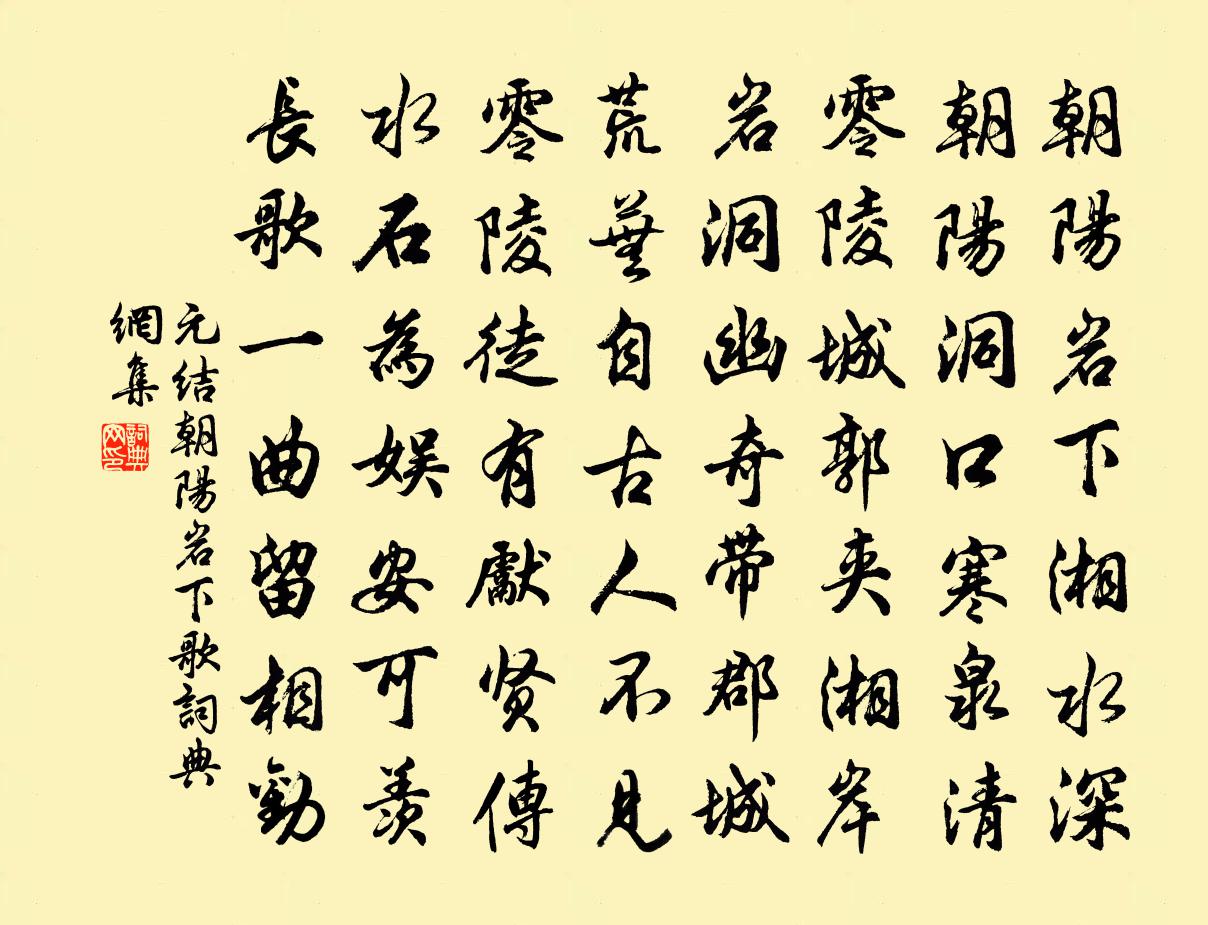 朝陽岩下湘水深
朝陽洞口寒泉清
零陵城郭夾湘岸
岩洞幽奇帶郡城
荒蕪自古人不見
零陵徒有獻贤傳
水石為娱安可羡
長歌一曲留相勸
元结朝陽岩下歌詞典
網集
詞典
网印